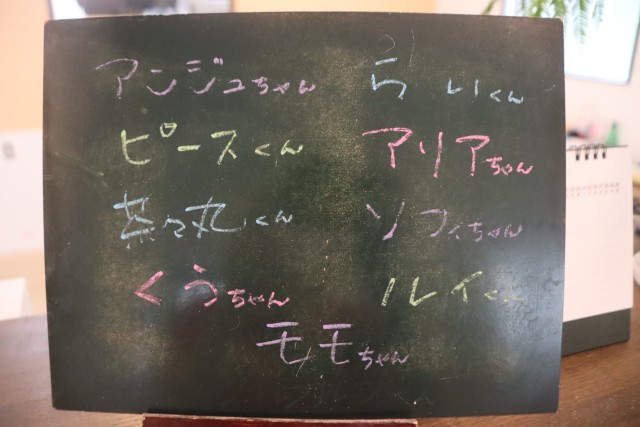 アンジュちゃん
らいくん
ピースくん
アリアちゃん
茶々丸くん
ソフィちゃん
くうちゃん
ルイくん
モモちゃん